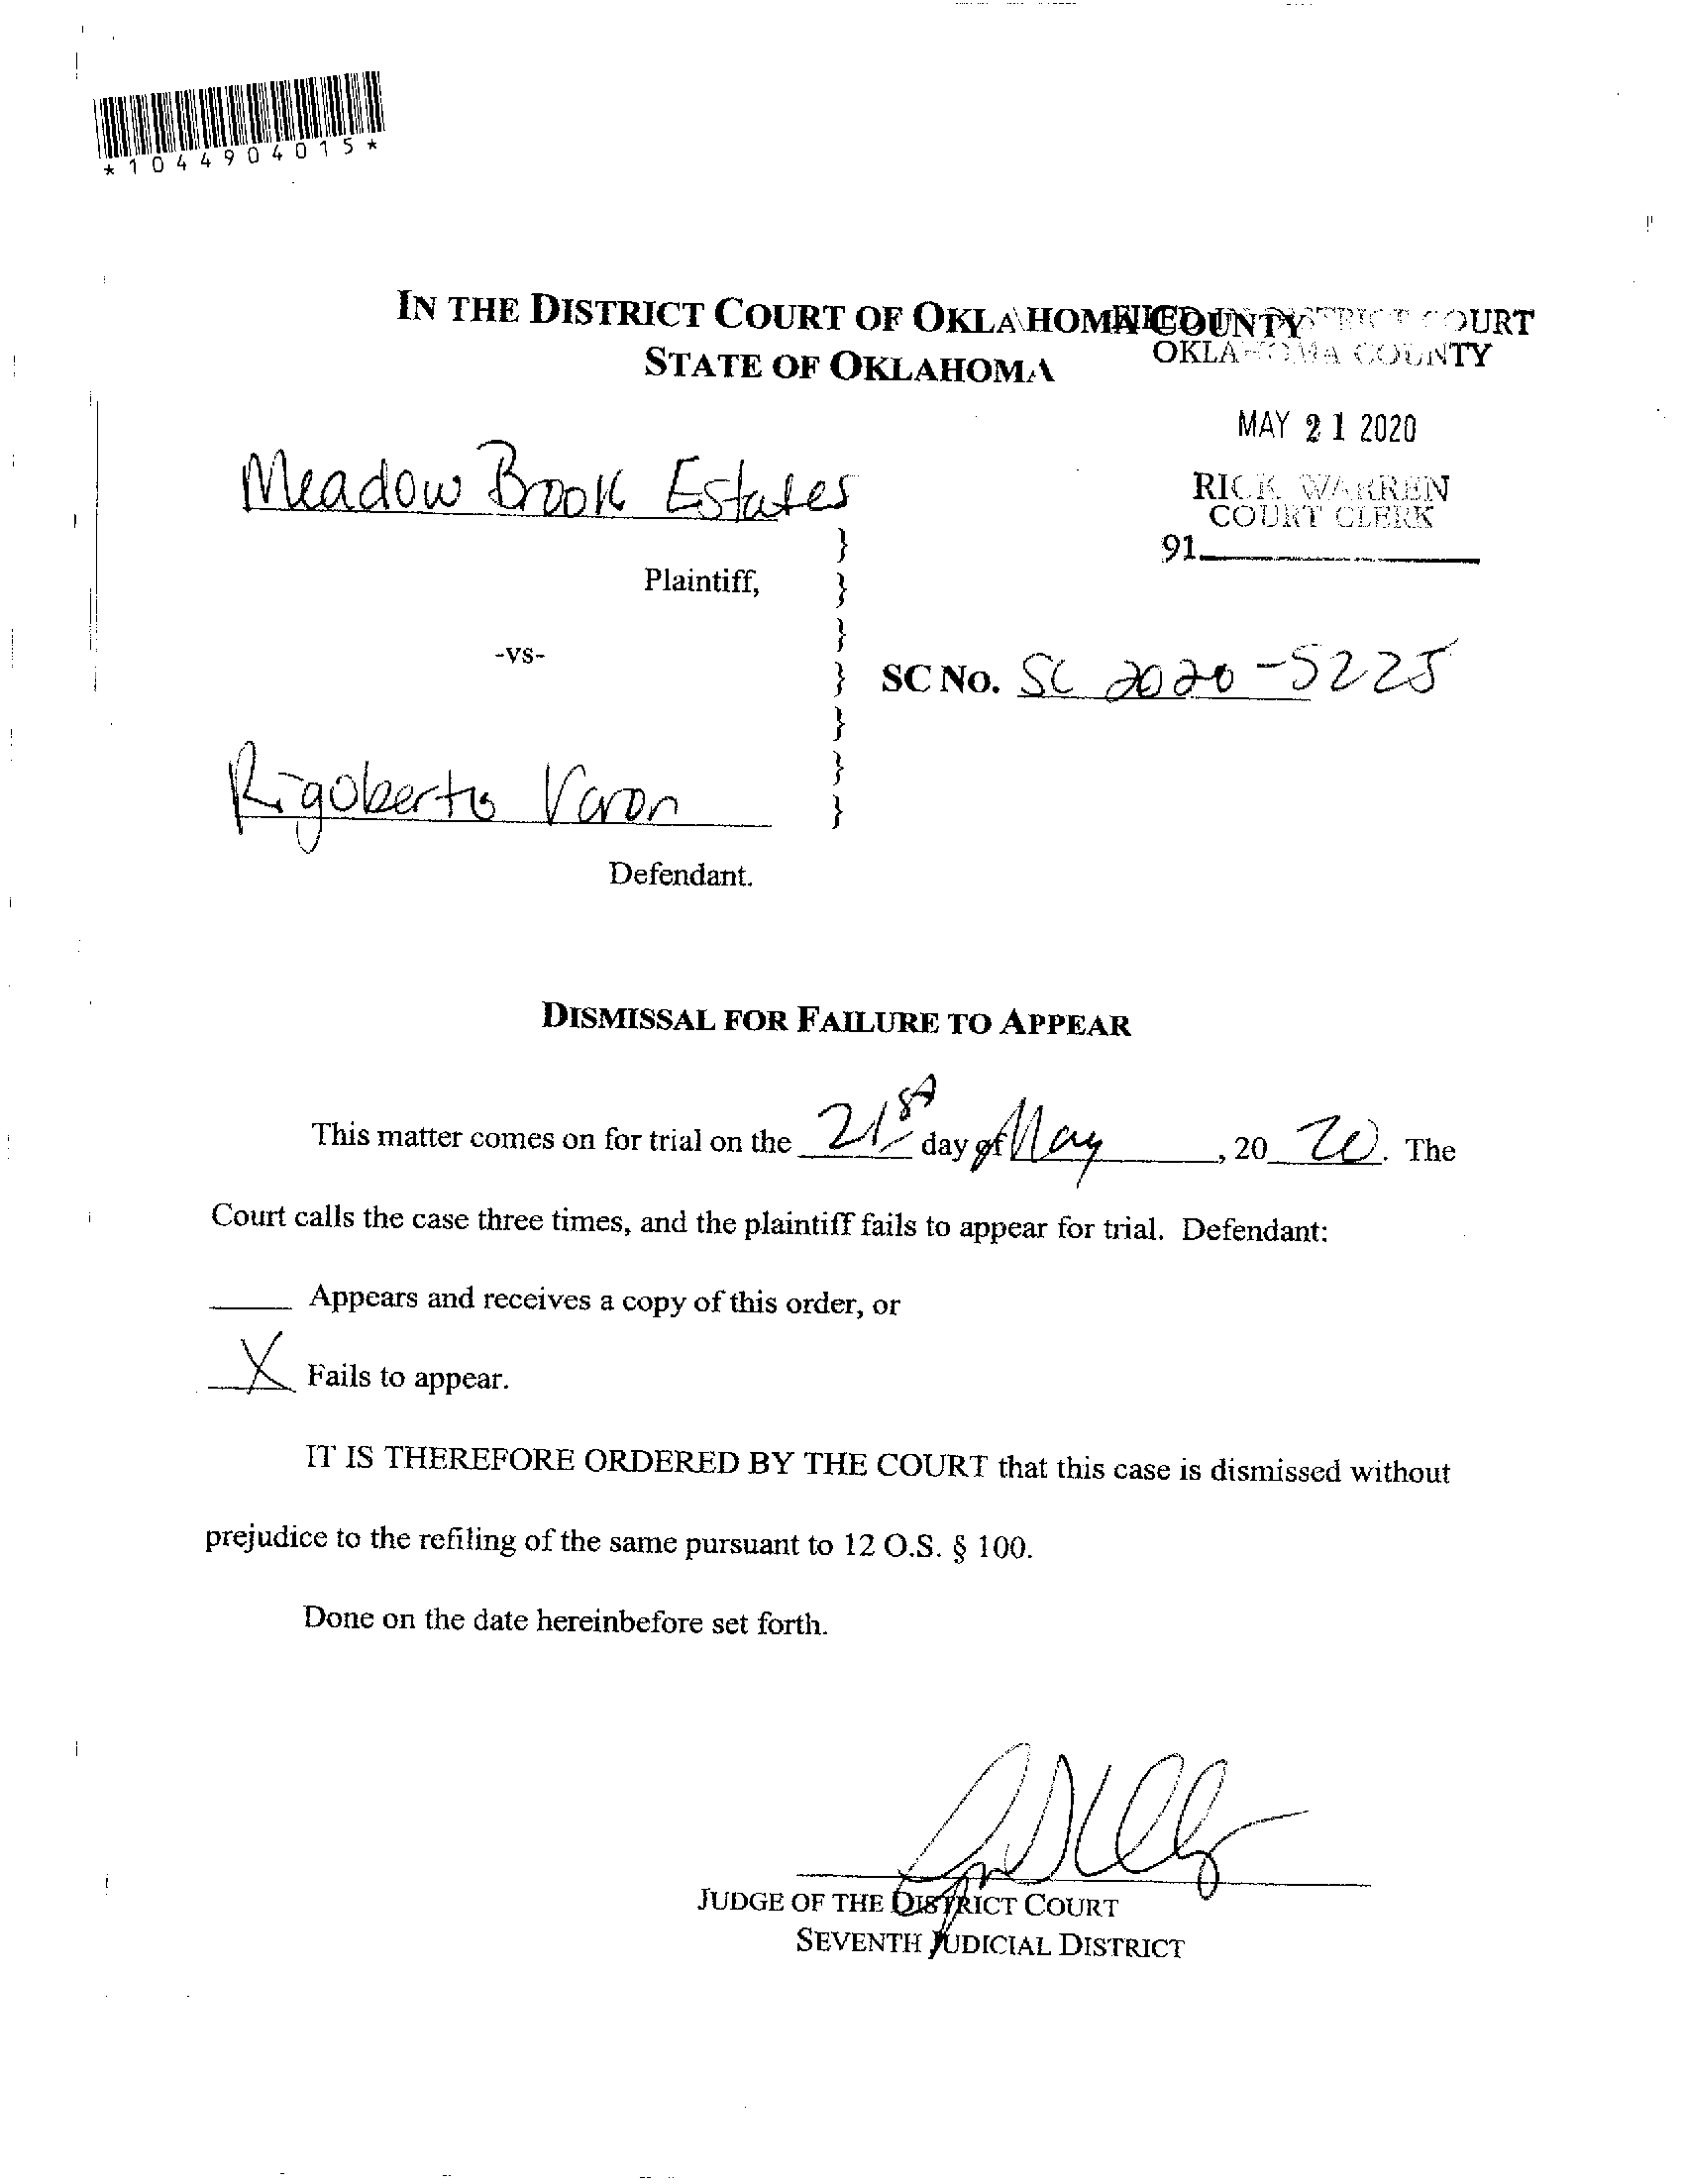 *1044904015*
IN THE DISTRICT COURT OF OKLAHOMA COUNTY
STATE OF OKLAHOMA
FILED IN DISTRICT COURT
OKLAHOMA COUNTY
MAY 21 2020
RICK WARREN
COURT CLERK
91
Meadow Brook Estates
Plaintiff,
-vs-
SC NO. SC 2020-5225
Rigoberto Varon
Defendant.
DISMISSAL FOR FAILURE TO APPEAR
This matter comes on for trial on the 21st day of May, 2020. The
Court calls the case three times, and the plaintiff fails to appear for trial. Defendant:
Appears and receives a copy of this order, or
X Fails to appear.
IT IS THEREFORE ORDERED BY THE COURT that this case is dismissed without
prejudice to the refiling of the same pursuant to 12 O.S. § 100.
Done on the date hereinbefore set forth.
JUDGE OF THE DISTRICT COURT
SEVENTH JUDICIAL DISTRICT